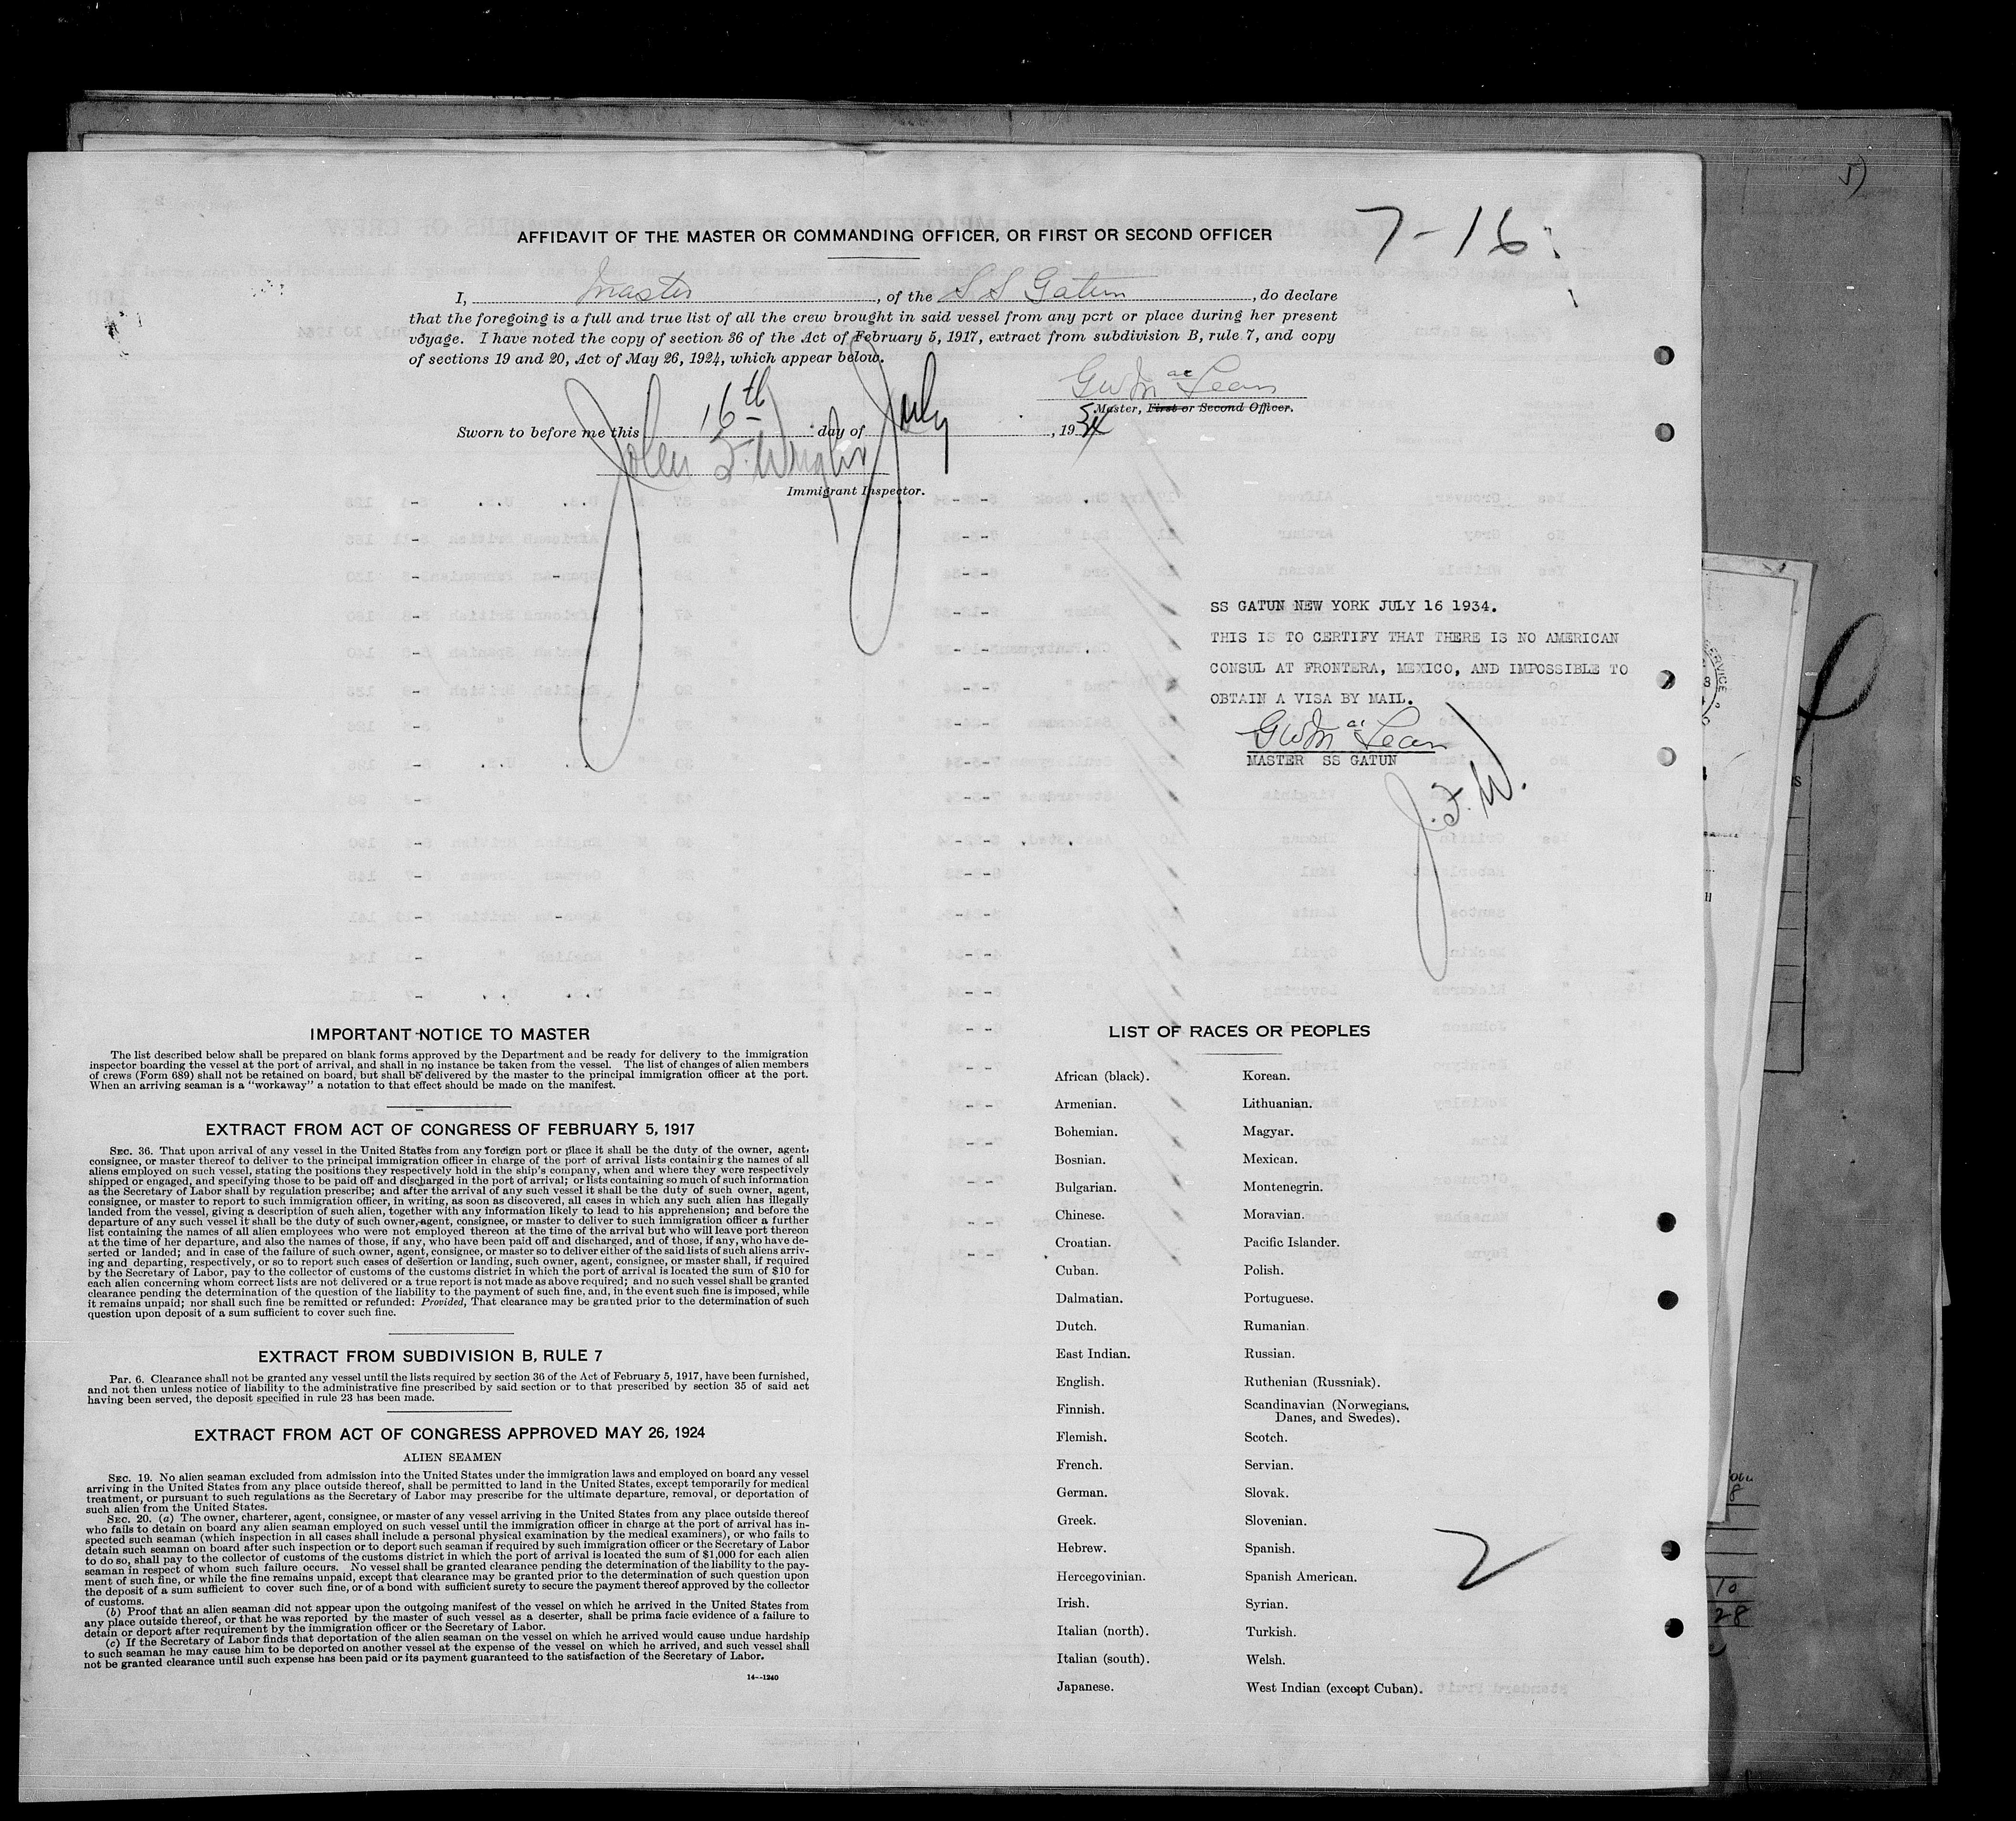 7-16
AFFIDAVIT OF THE MASTER OR COMMANDING OFFICER, OR FIRST OR SECOND OFFICER
I, Master, of the S S Gatun, do declare
that the foregoing is a full and true list of all the crew brought in said vessel from any port or place during her present
voyage. I have noted the copy of section 36 of the Act of February 5, 1917, extract from subdivision B, rule 7, and copy
of sections 19 and 20, Act of May 26, 1924, which appear below.
GW MacLean
Master, First or Second Officer.
Sworn to before me this 16th day of July, 1934
John F. Wright
Immigrant Inspector.
SS GATUN NEW YORK JULY 16 1934.
THIS IS TO CERTIFY THAT THERE IS NO AMERICAN
CONSUL AT FRONTERA, MEXICO, AND IMPOSSIBLE TO
OBTAIN A VISA BY MAIL.
GW MacLean
MASTER SS GATUN
J.F.W.
IMPORTANT NOTICE TO MASTER
The list described below shall be prepared on blank forms approved by the Department and be ready for delivery to the immigration
inspector boarding the vessel at the port of arrival, and shall in no instance be taken from the vessel. The list of changes of alien members
of crews (Form 689) shall not be retained on board, but shall be delivered by the master to the principal immigration officer at the port.
When an arriving seaman is a "workaway" a notation to that effect should be made on the manifest.
EXTRACT FROM ACT OF CONGRESS OF FEBRUARY 5, 1917
SEC. 36. That upon arrival of any vessel in the United States from any foreign port or place it shall be the duty of the owner, agent,
consignee, or master thereof to deliver to the principal immigration officer in charge of the port of arrival lists containing the names of all
aliens employed on such vessel, stating the positions they respectively hold in the ship's company, when and where they were respectively
shipped or engaged, and specifying those to be paid off and discharged in the port of arrival; or lists containing so much of such information
as the Secretary of Labor shall by regulation prescribe; and after the arrival of any such vessel it shall be the duty of such owner, agent,
consignee, or master to report to such immigration officer, in writing, as soon as discovered, all cases in which any such alien has illegally
landed from the vessel, giving a description of such alien, together with any information likely to lead to his apprehension; and before the
departure of any such vessel it shall be the duty of such owner, agent, consignee, or master to deliver to such immigration officer a further
list containing the names of all alien employees who were not employed thereon at the time of the arrival but who will leave port thereon
at the time of her departure, and also the names of those, if any, who have been paid off and discharged, and of those, if any, who have de-
serted or landed; and in case of the failure of such owner, agent, consignee, or master so to deliver either of the said lists of such aliens arriv-
ing and departing, respectively, or so to report such cases of desertion or landing, such owner, agent, consignee, or master shall, if required
by the Secretary of Labor, pay to the collector of customs of the customs district in which the port of arrival is located the sum of $10 for
each alien concerning whom correct lists are not delivered or a true report is not made as above required; and no such vessel shall be granted
clearance pending the determination of the question of the liability to the payment of such fine, and, in the event such fine is imposed, while
it remains unpaid; nor shall such fine be remitted or refunded: Provided, That clearance may be granted prior to the determination of such
question upon deposit of a sum sufficient to cover such fine.
EXTRACT FROM SUBDIVISION B, RULE 7
Par. 6. Clearance shall not be granted any vessel until the lists required by section 36 of the Act of February 5, 1917, have been furnished,
and not then unless notice of liability to the administrative fine prescribed by said section or to that prescribed by section 35 of said act
having been served, the deposit specified in rule 23 has been made.
EXTRACT FROM ACT OF CONGRESS APPROVED MAY 26, 1924
ALIEN SEAMEN
SEC. 19. No alien seaman excluded from admission into the United States under the immigration laws and employed on board any vessel
arriving in the United States from any place outside thereof, shall be permitted to land in the United States, except temporarily for medical
treatment, or pursuant to such regulations as the Secretary of Labor may prescribe for the ultimate departure, removal, or deportation of
such alien from the United States.
SEC. 20. (a) The owner, charterer, agent, consignee, or master of any vessel arriving in the United States from any place outside thereof
who fails to detain on board any alien seaman employed on such vessel until the immigration officer in charge at the port of arrival has in-
spected such seaman (which inspection in all cases shall include a personal physical examination by the medical examiners), or who fails to
detain such seaman on board after such inspection or to deport such seaman if required by such immigration officer or the Secretary of Labor
to do so, shall pay to the collector of customs of the customs district in which the port of arrival is located the sum of $1,000 for each alien
seaman in respect of whom such failure occurs. No vessel shall be granted clearance pending the determination of the liability to the pay-
ment of such fine, or while the fine remains unpaid, except that clearance may be granted prior to the determination of such question upon
the deposit of a sum sufficient to cover such fine, or of a bond with sufficient surety to secure the payment thereof approved by the collector
of customs.
(b) Proof that an alien seaman did not appear upon the outgoing manifest of the vessel on which he arrived in the United States from
any place outside thereof, or that he was reported by the master of such vessel as a deserter, shall be prima facie evidence of a failure to
detain or deport after requirement by the immigration officer or the Secretary of Labor.
(c) If the Secretary of Labor finds that deportation of the alien seaman on the vessel on which he arrived would cause undue hardship
to such seaman he may cause him to be deported on another vessel at the expense of the vessel on which he arrived, and such vessel shall
not be granted clearance until such expense has been paid or its payment guaranteed to the satisfaction of the Secretary of Labor.
14-1240
LIST OF RACES OR PEOPLES
African (black).
Armenian.
Bohemian.
Bosnian.
Bulgarian.
Chinese.
Croatian.
Cuban.
Dalmatian.
Dutch.
East Indian.
English.
Finnish.
Flemish.
French.
German.
Greek.
Hebrew.
Hercegovinian.
Irish.
Italian (north).
Italian (south).
Japanese.
Korean.
Lithuanian.
Magyar.
Mexican.
Montenegrin.
Moravian.
Pacific Islander.
Polish.
Portuguese.
Rumanian.
Russian.
Ruthenian (Russniak).
Scandinavian (Norwegians,
Danes, and Swedes).
Scotch.
Servian.
Slovak.
Slovenian.
Spanish.
Spanish American.
Syrian.
Turkish.
Welsh.
West Indian (except Cuban).
2
10
28